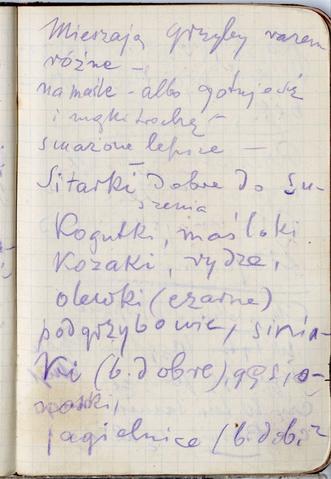 Mieszają grzyby razem
różne —
na maśle - albo gotuje się
i mąki trochę -
smażone lepsze —
Sitarki dobre do su-
szenia
Kogutki, maśloki
Kozaki, rydze,
olewki (czarne)
podgrzybowie, sinia-
ki (b. dobre), gąsio-
jagielnice (b. dob.